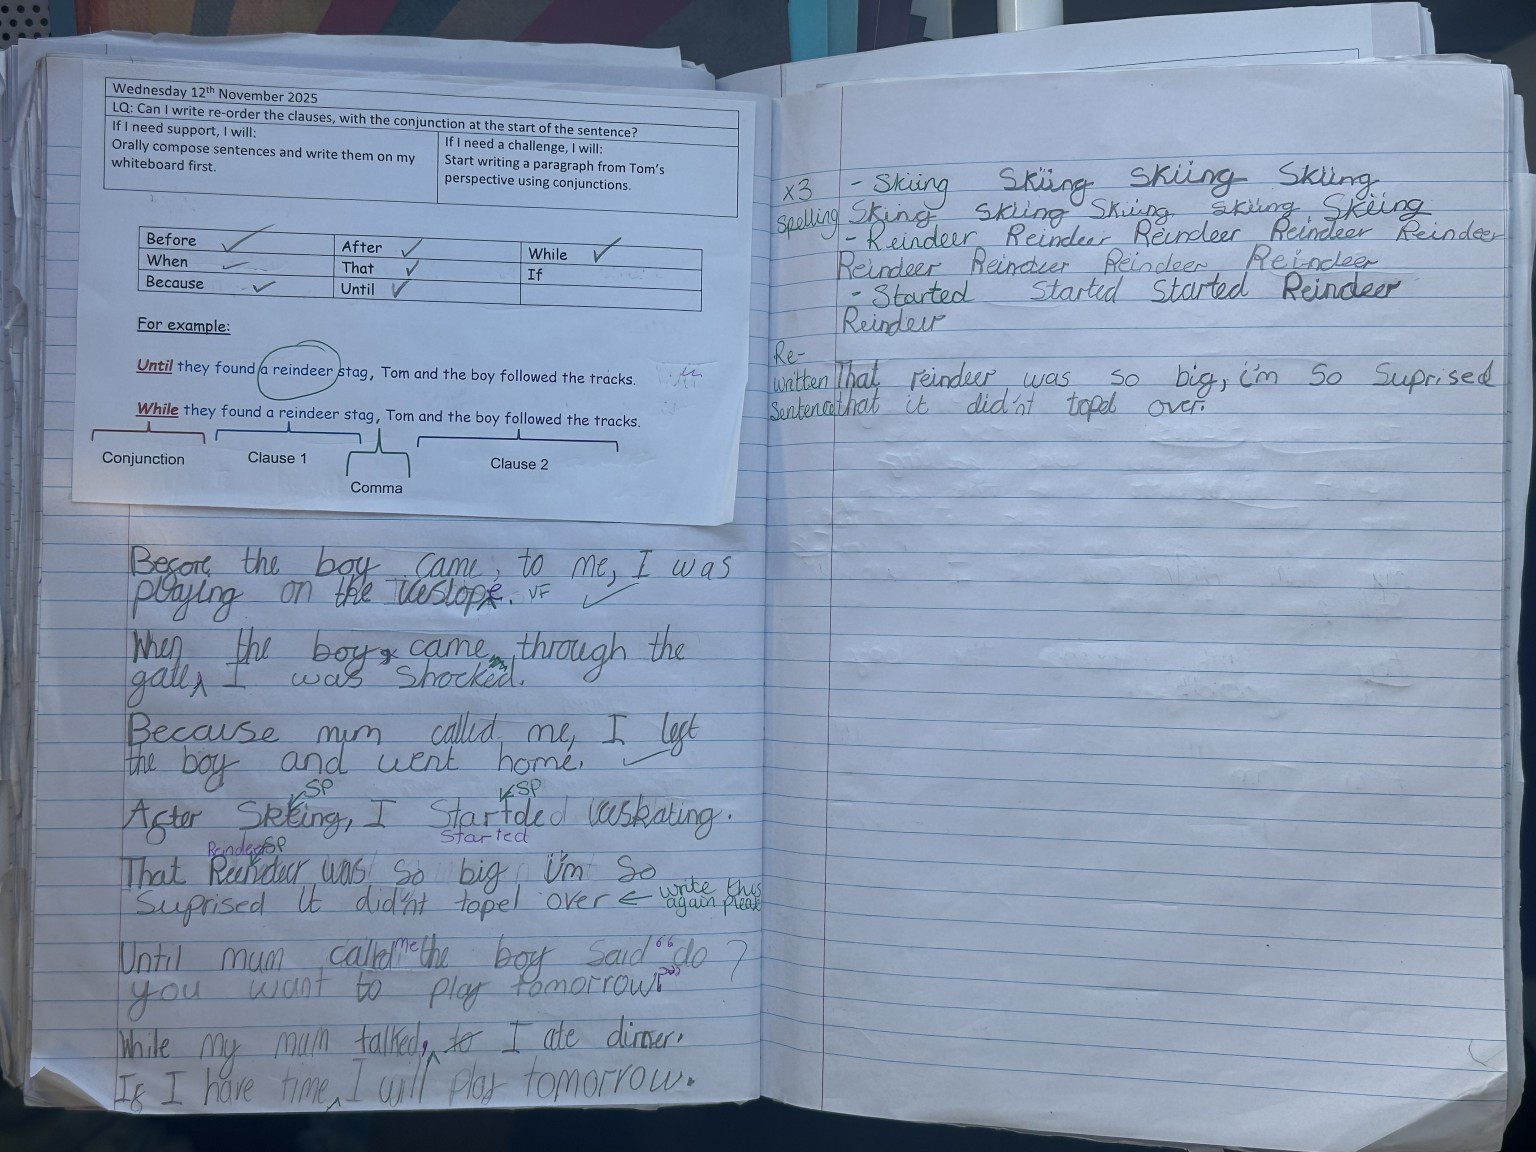 Wednesday 12th November 2025
LQ: Can I write re-order the clauses, with the conjunction at the start of the sentence?
If I need support, I will:
Orally compose sentences and write them on my
whiteboard first.
If I need a challenge, I will:
Start writing a paragraph from Tom's
perspective using conjunctions.
Before After While
When That If
Because Until
For example:
Until they found a reindeer stag, Tom and the boy followed the tracks.
While they found a reindeer stag, Tom and the boy followed the tracks.
Conjunction Clause 1 Clause 2
Comma
Before the boy came, to me, I was
playing on the iceslope. VF
When the boy came through the
gate, I was shocked.
Because mum called me, I left
the boy and went home.
SP SP
After Skeing, I Startded iceskating.
Started
Reindeer SP
That was so big i'm so
Suprised it did'nt topel over ← write this
again please
Until mum called me the boy said “do ?
you want to play tomorrow?”
While my mum talked, to I ate dinner.
If I have time, I will play tomorrow.
x3 - Skiing Skiing Skiing Skiing
spelling Skiing Skiing Skiing Skiing Skiing
- Reindeer Reindeer Reindeer Reindeer Reindeer
Reindeer Reindeer Reindeer Reindeer
- Started Started Started Reindeer
Reindeer
Re-
written That reindeer was so big, i'm so Suprised
Sentence that it did'nt topel over.